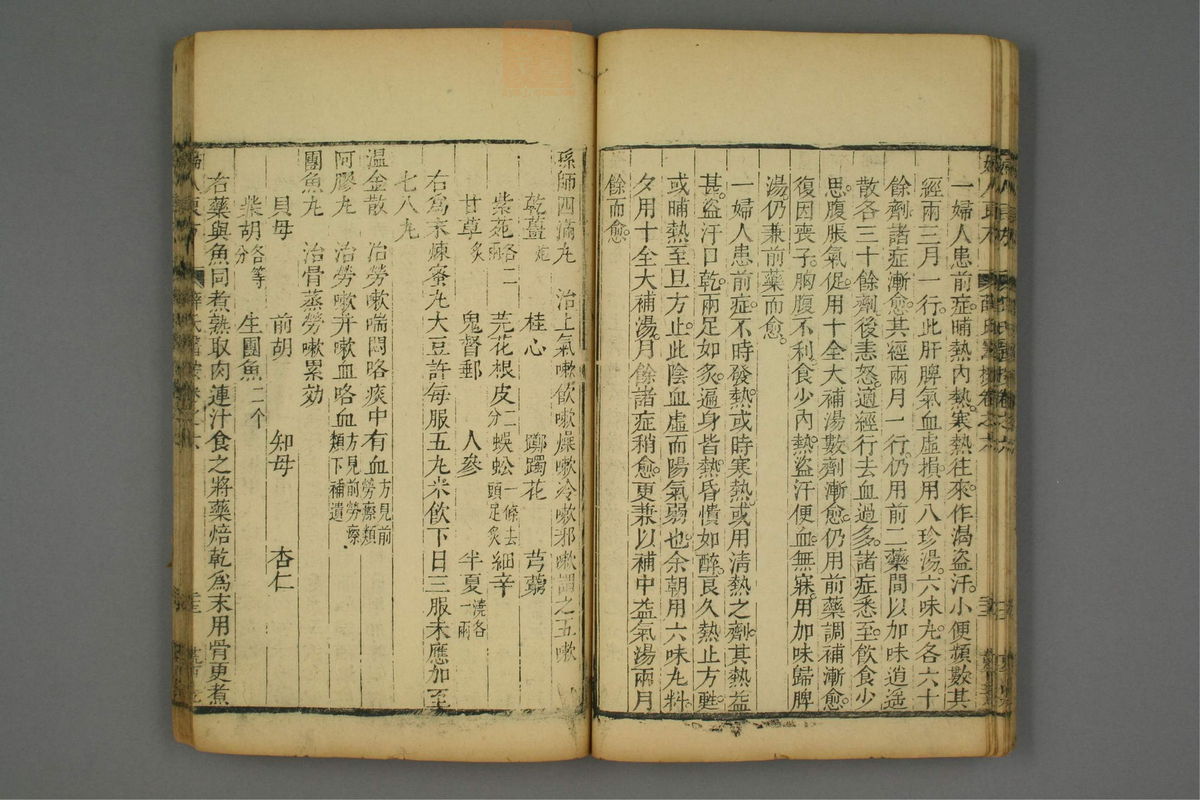 一婦人患前症晡熱內熱寒熱往來作渴盜汗小便頻數其
經兩三月一行此肝脾氣血虛損用八珍湯六味丸各六十
餘劑諸症漸愈其經兩月一行仍用前二藥間以加味逍遙
散各三十餘劑後恚怒適經行去血過多諸症悉至飲食少
思腹脹氣促用十全大補湯數劑漸愈仍用前藥調補漸愈
復因喪子胸腹不利食少內熱盜汗便血無寐用加味歸脾
湯仍兼前藥而愈
一婦人患前症不時發熱或時寒熱或用清熱之劑其熱益
甚盜汗口乾兩足如炙遍身皆熱昏憒如醉良久熱止方甦
或晡熱至旦方止此陰血虛而陽氣弱也余朝用六味丸料
夕用十全大補湯月餘諸症稍愈更兼以補中益氣湯兩月
餘而愈
孫師四滿丸 治上氣嗽飲嗽燥嗽冷嗽邪嗽謂之五嗽
乾薑炮 桂心 躑躅花 芎藭
紫菀各二兩 芫花根皮二分 蜈蚣一條去頭足炙 細辛
甘草炙 鬼督郵 人參 半夏澆各一兩
右爲末煉蜜丸大豆許每服五丸米飲下日三服未應加至
七八丸
温金散 治勞嗽喘悶咯痰中有血方見前勞瘵類
阿膠丸 治勞嗽并嗽血咯血方見前勞瘵類下補遺
團魚丸 治骨蒸勞嗽累効
貝母 前胡 知母 杏仁
柴胡各等分 生團魚二个
右藥與魚同煮熟取肉連汁食之將藥焙乾爲末用骨更煮